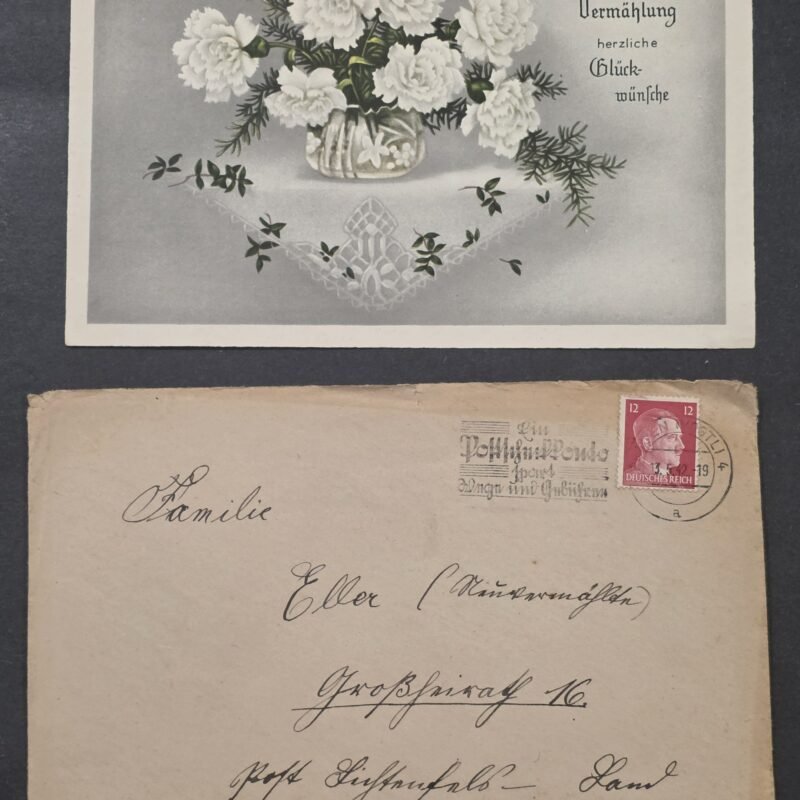 Vermählung
herzliche
Glück-
wünsche
Ein
Postscheckkonto
spart
Wege und Gebühren
12 12
DEUTSCHES REICH
4
-19
a
Familie
Eller (Neuvermählte)
Großheirath 16.
Post Lichtenfels – Land